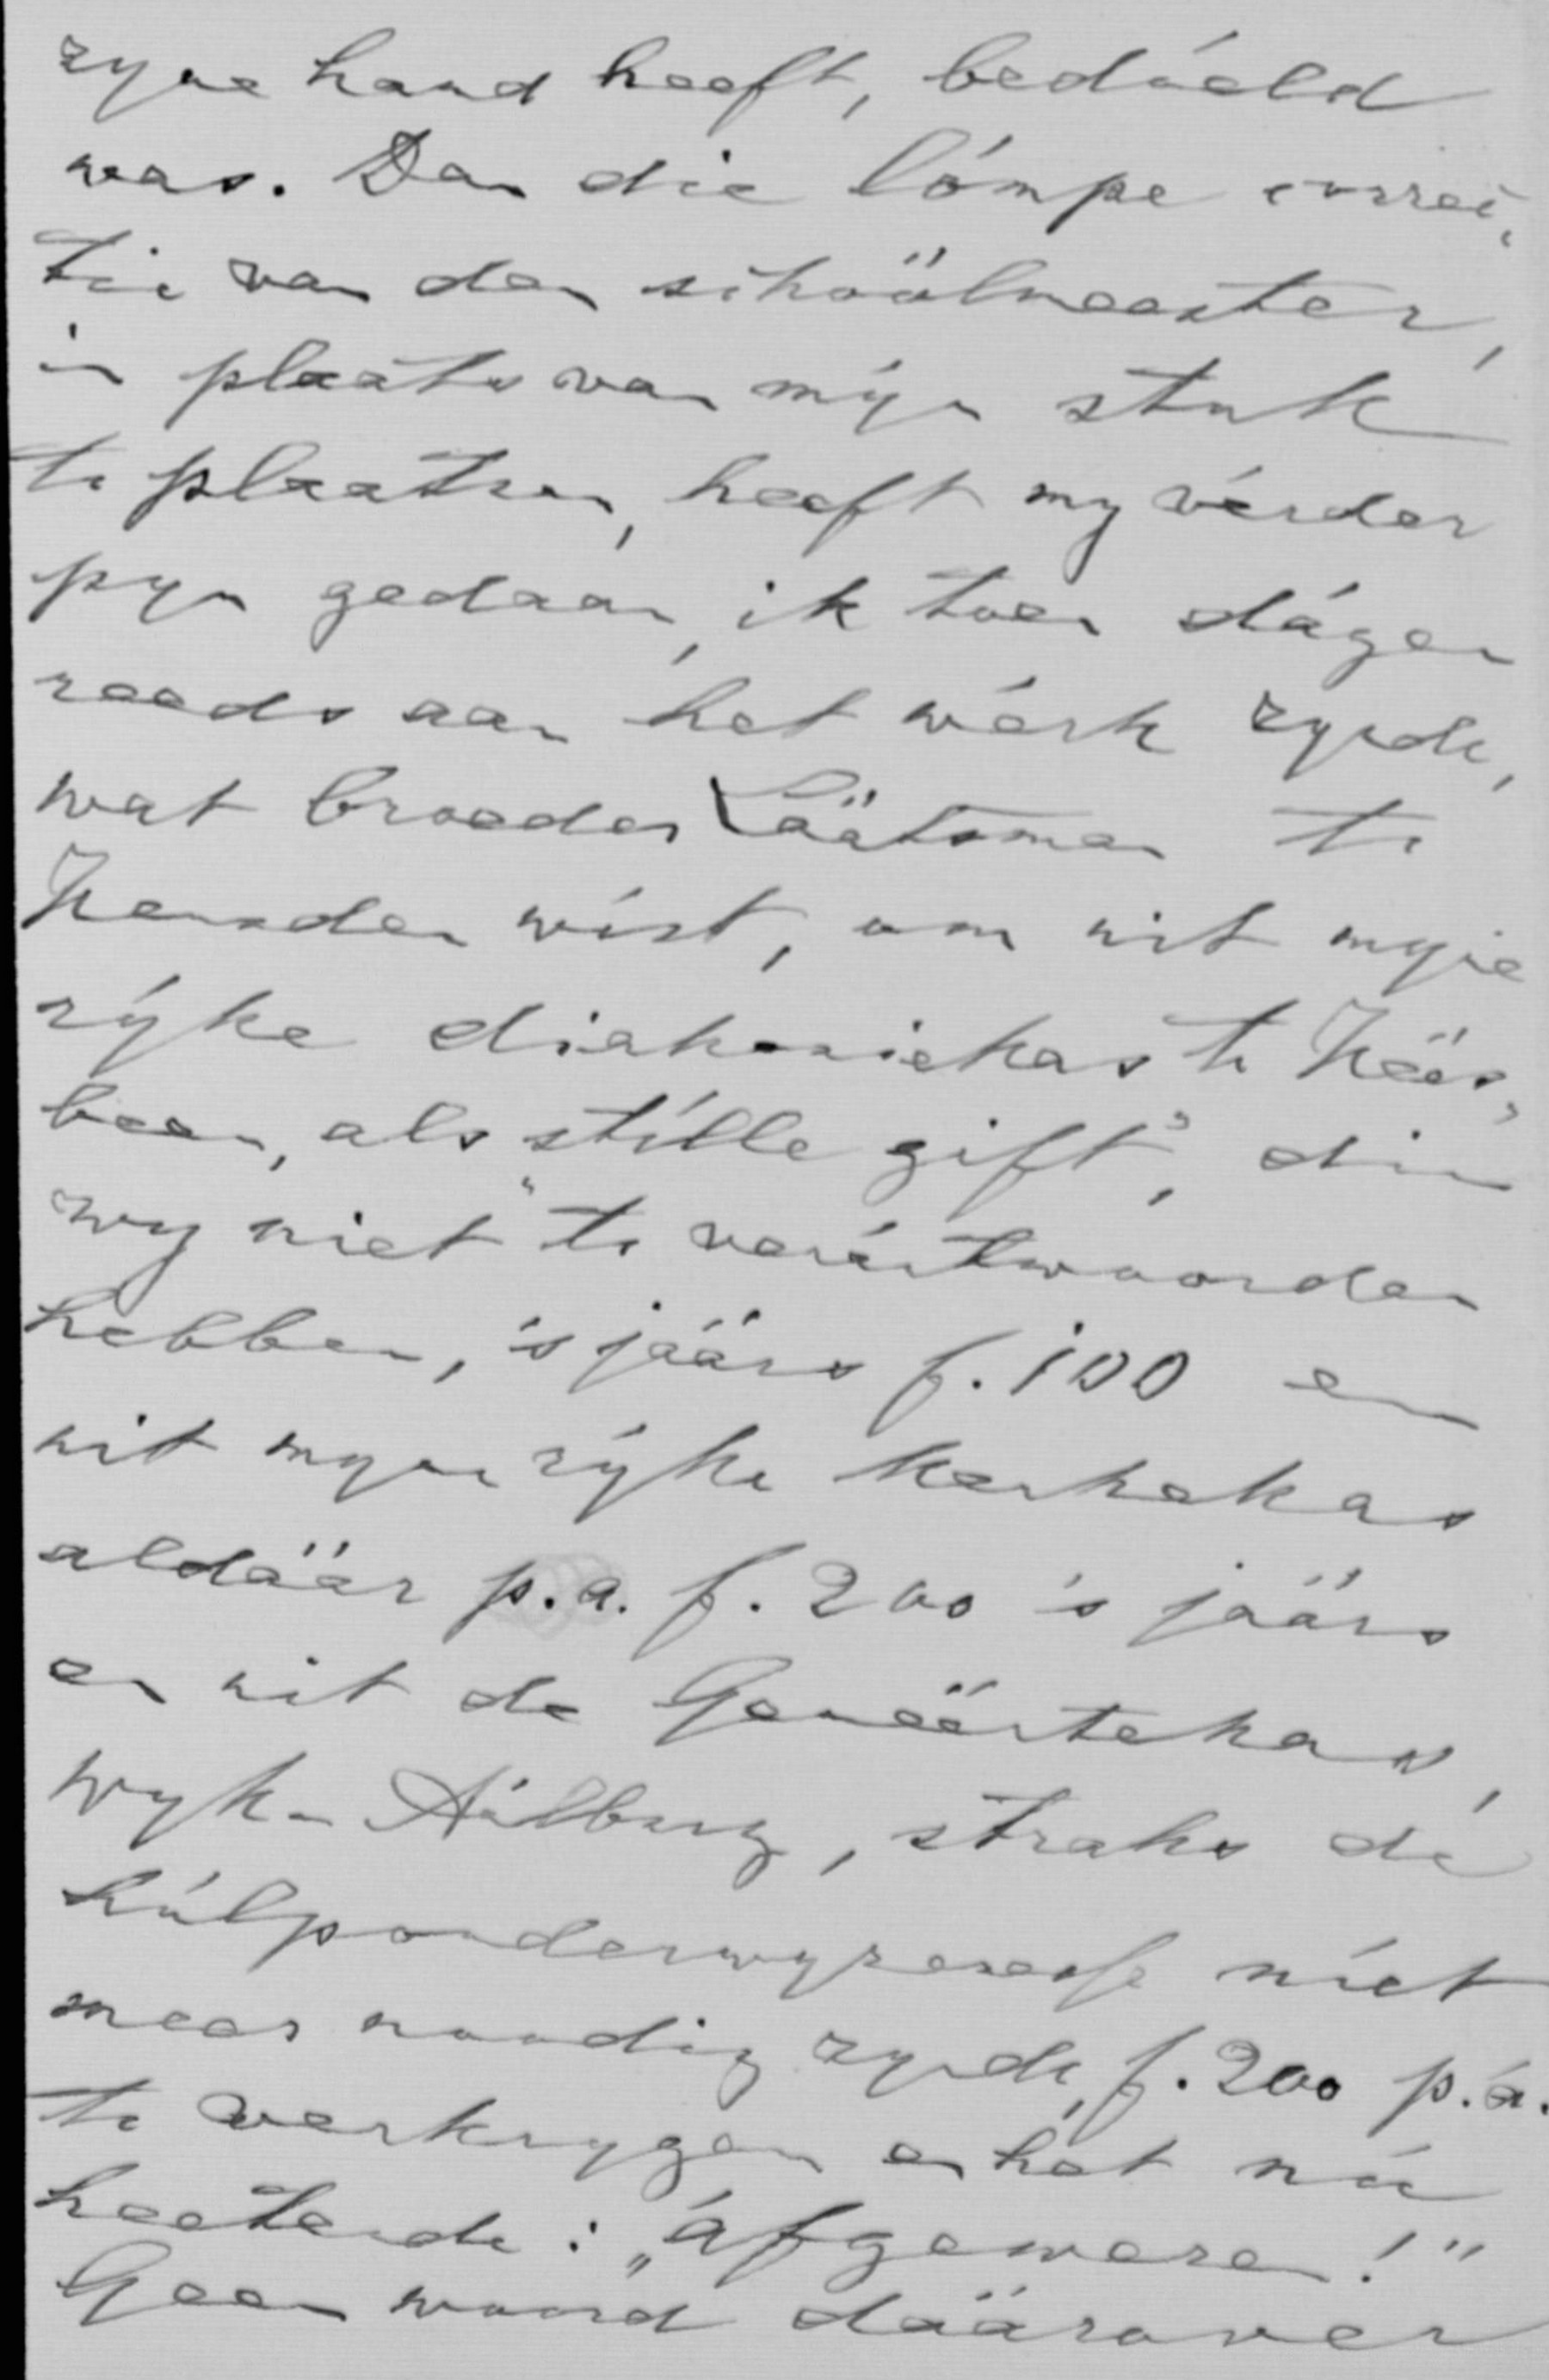 zyne hand heeft, bedóeld
was. Dan die lómpe correc,
tie van den schoölmeester,
in plaats van mýn stuk
te plaatsen, heeft my vérder
pyn gedaan, ik toen dágen
reeds aan het wérk zynde,
wat broeder Läätsman te
Heusden wíst, om uit myne
rýke diakoniekas te Hëës,
been, als „stílle gift”, die
wy niet te verántwoorden
hebben, 's jáárs f. 100 en
uit myne rýke kerkekas
aldäär p.a. f. 200 's jáárs
en uit de Gemëëntekas,
Wyk-Aálburg, straks dé
húlponderwyzeresse níet
meer noodig zynde, f. 200 p.a.
te verkrygen en hét nú
heetende: „áfgewezen!”
Geen woord däärover